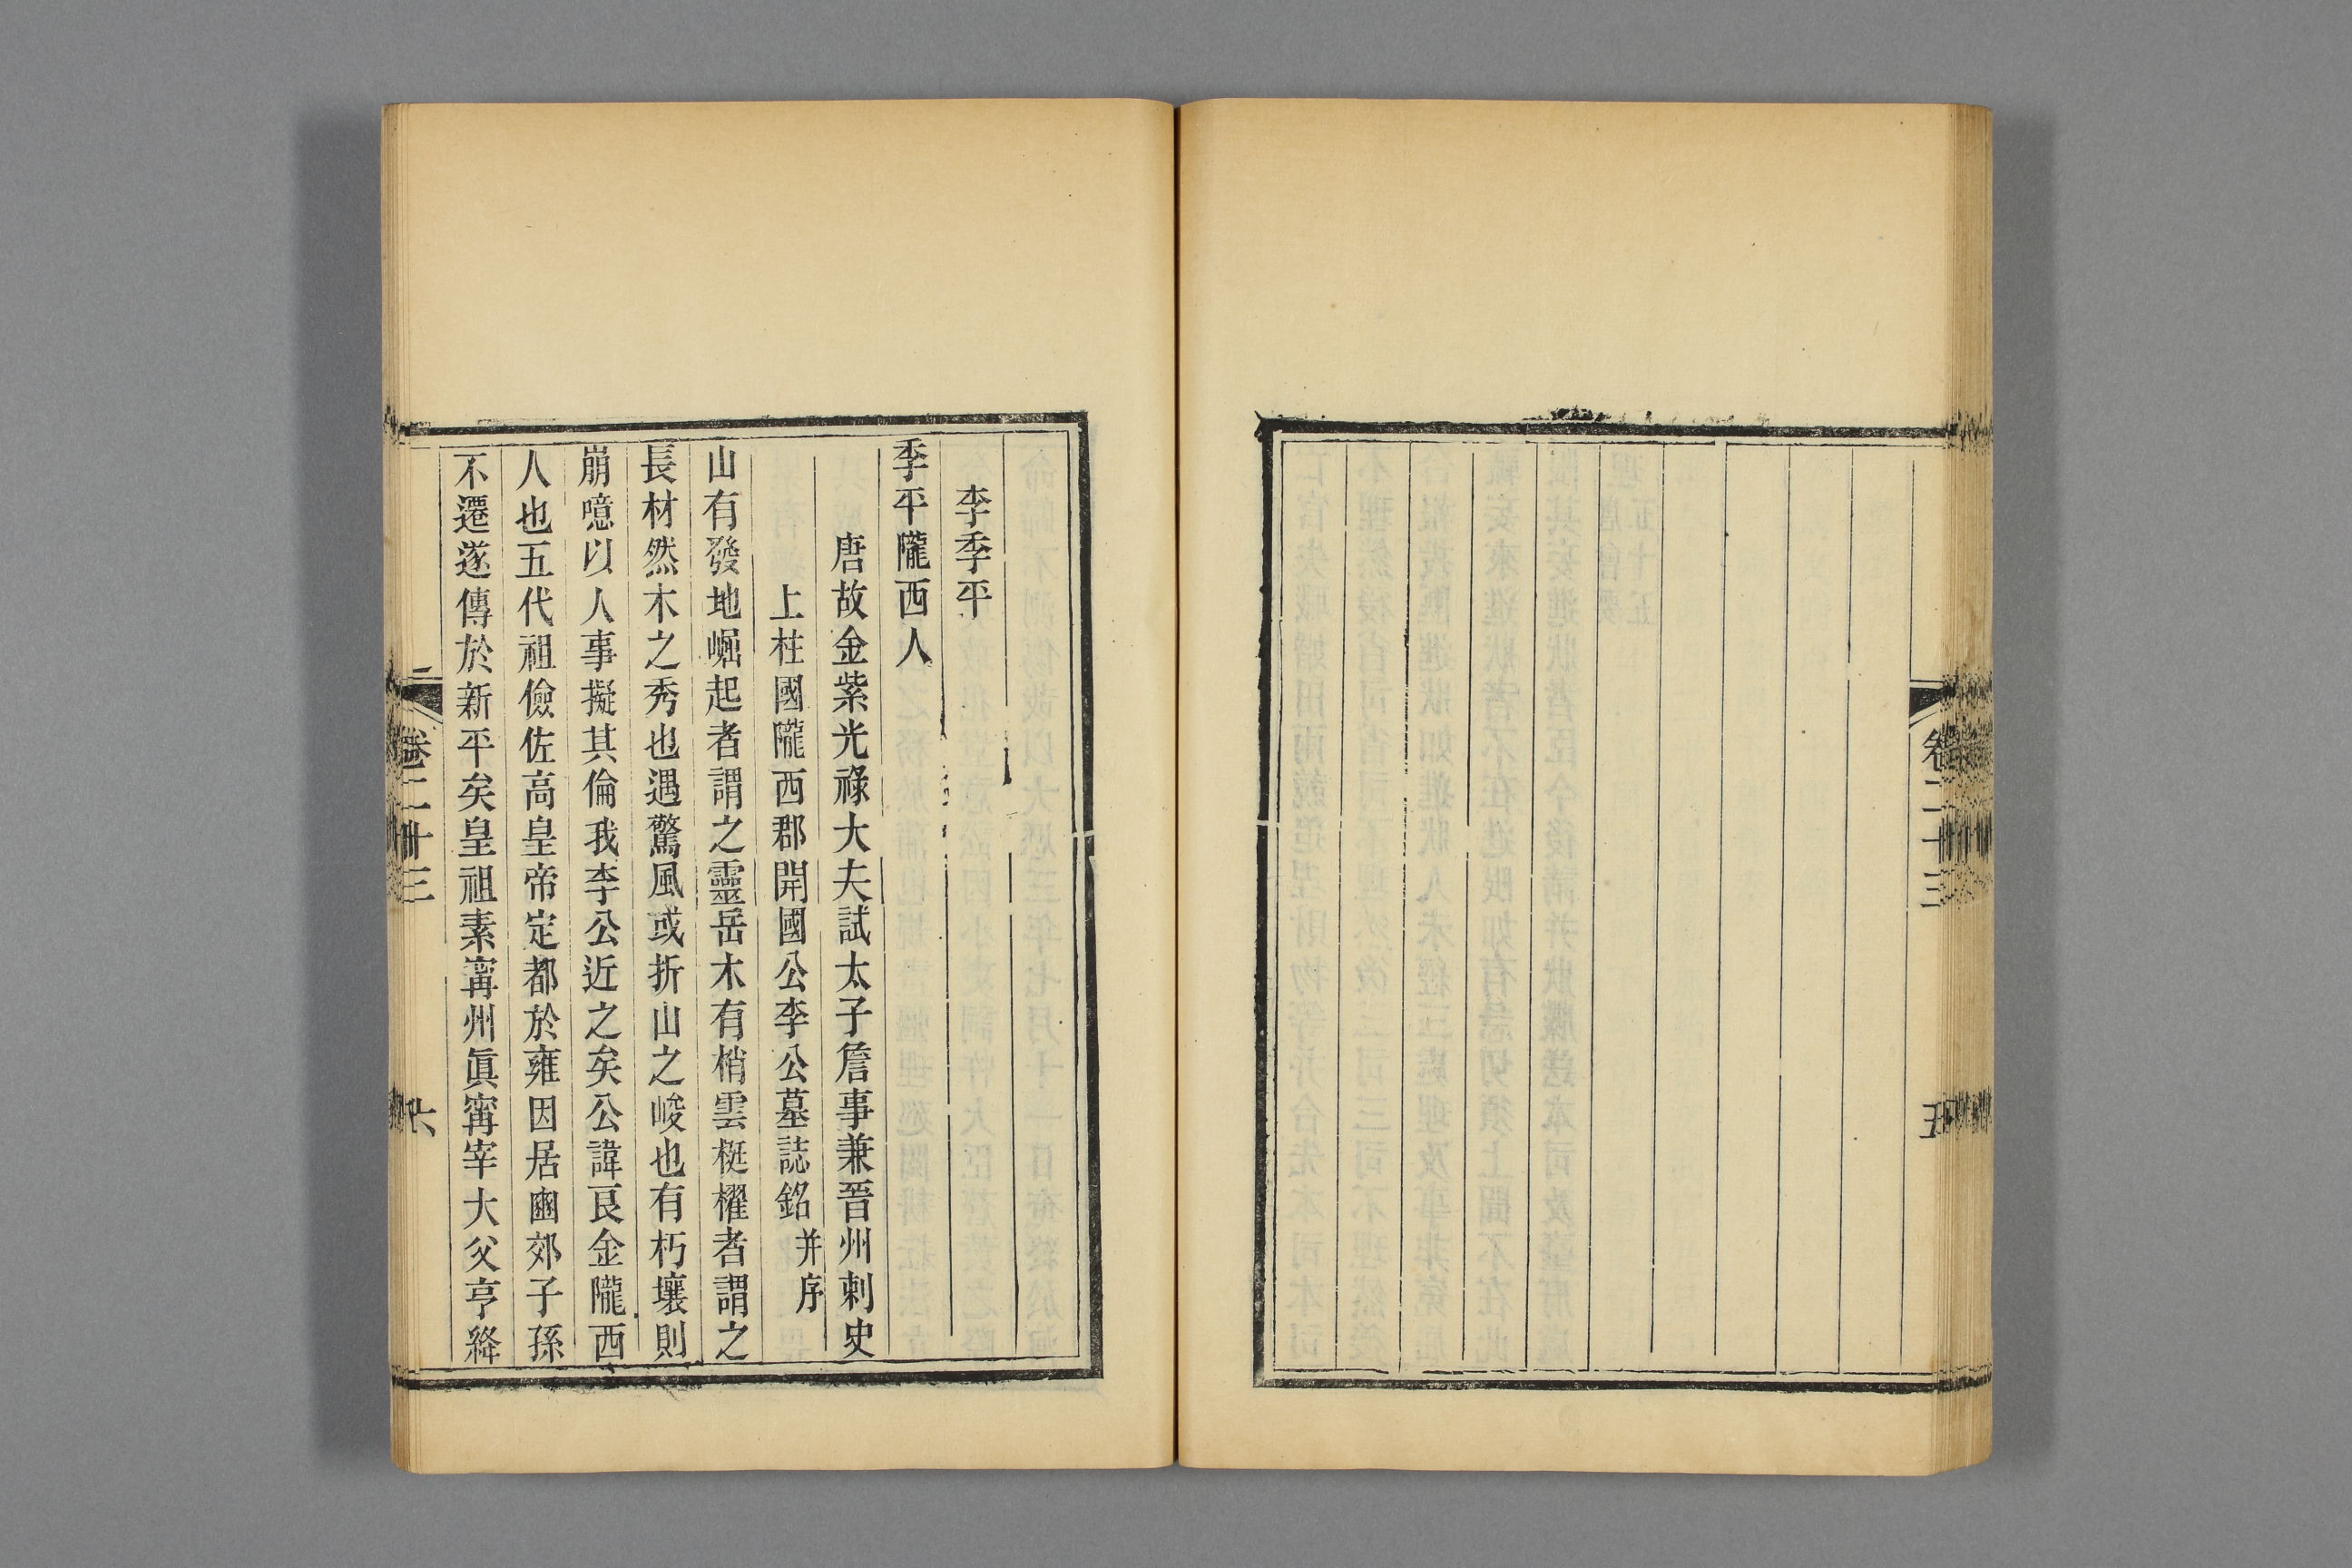 卷二十三
五
李季平
季平隴西人
唐故金紫光祿大夫試太子詹事兼晉州刺史
上柱國隴西郡開國公李公墓誌銘并序
山有發地崛起者謂之靈岳木有梢雲梃櫂者謂之
長材然木之秀也遇驚風或折山之峻也有朽壤則
崩噫以人事擬其倫我李公近之矣公諱良金隴西
人也五代祖儉佐高皇帝定都於雍因居豳郊子孫
不遷遂傳於新平矣皇祖素甯州眞甯宰大父亨絳
卷二十三
六